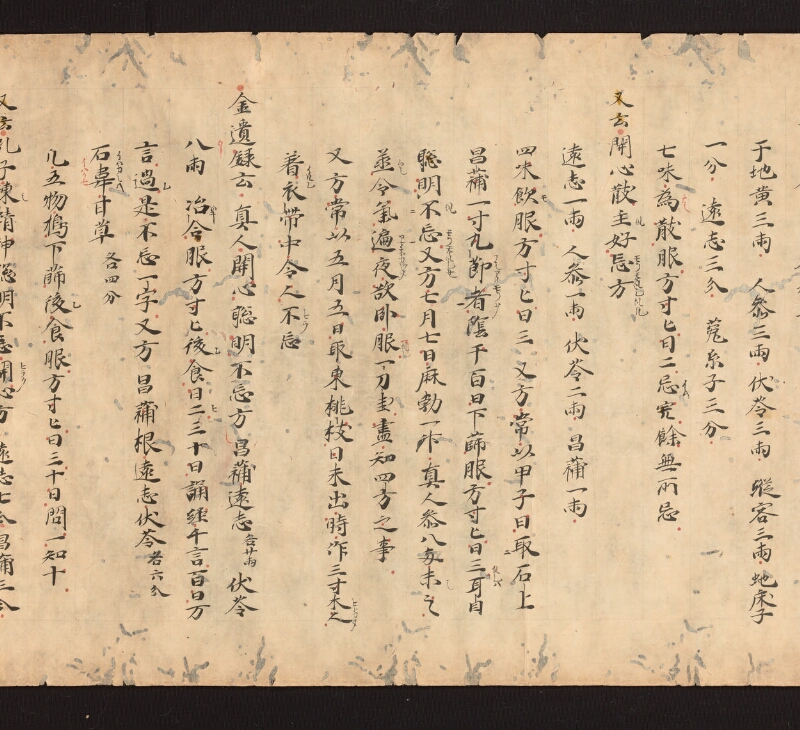 干地黄三両 人参三両 伏苓三両 蹤容三両 虵床子
一分 遠志三分 菟糸子三分
七味為散服方寸匕日二 忌 餘無所忌
又云開心散主好忘方
遠志一両 人参一両 伏苓二両 昌蒲一両
四味飲服方寸匕日三 又方常以甲子日取石上
昌蒲一寸九節者陰干百日下篩服方寸匕日三耳目
聡明不忘又方七月七日麻勃一升真人参八両末之
蒸令氣遍夜欲卧服一刀圭盡知四方之事
又方常以五月五日取東桃枝日未出時作三寸木之
着衣帯中令人不忘
金遺録云真人開心聡明不忘方 昌蒲遠志各 両 伏苓
八両 治合服方寸匕後食日二三十日誦經千言百日万
言過是不忘一字又方 昌蒲根遠志伏苓各六分
石韋甘草各四分
凡五物搗下篩後食服方寸匕日三十日問一知十
又云孔子練精神聡明不忘開心方 遠志七分昌蒲三分